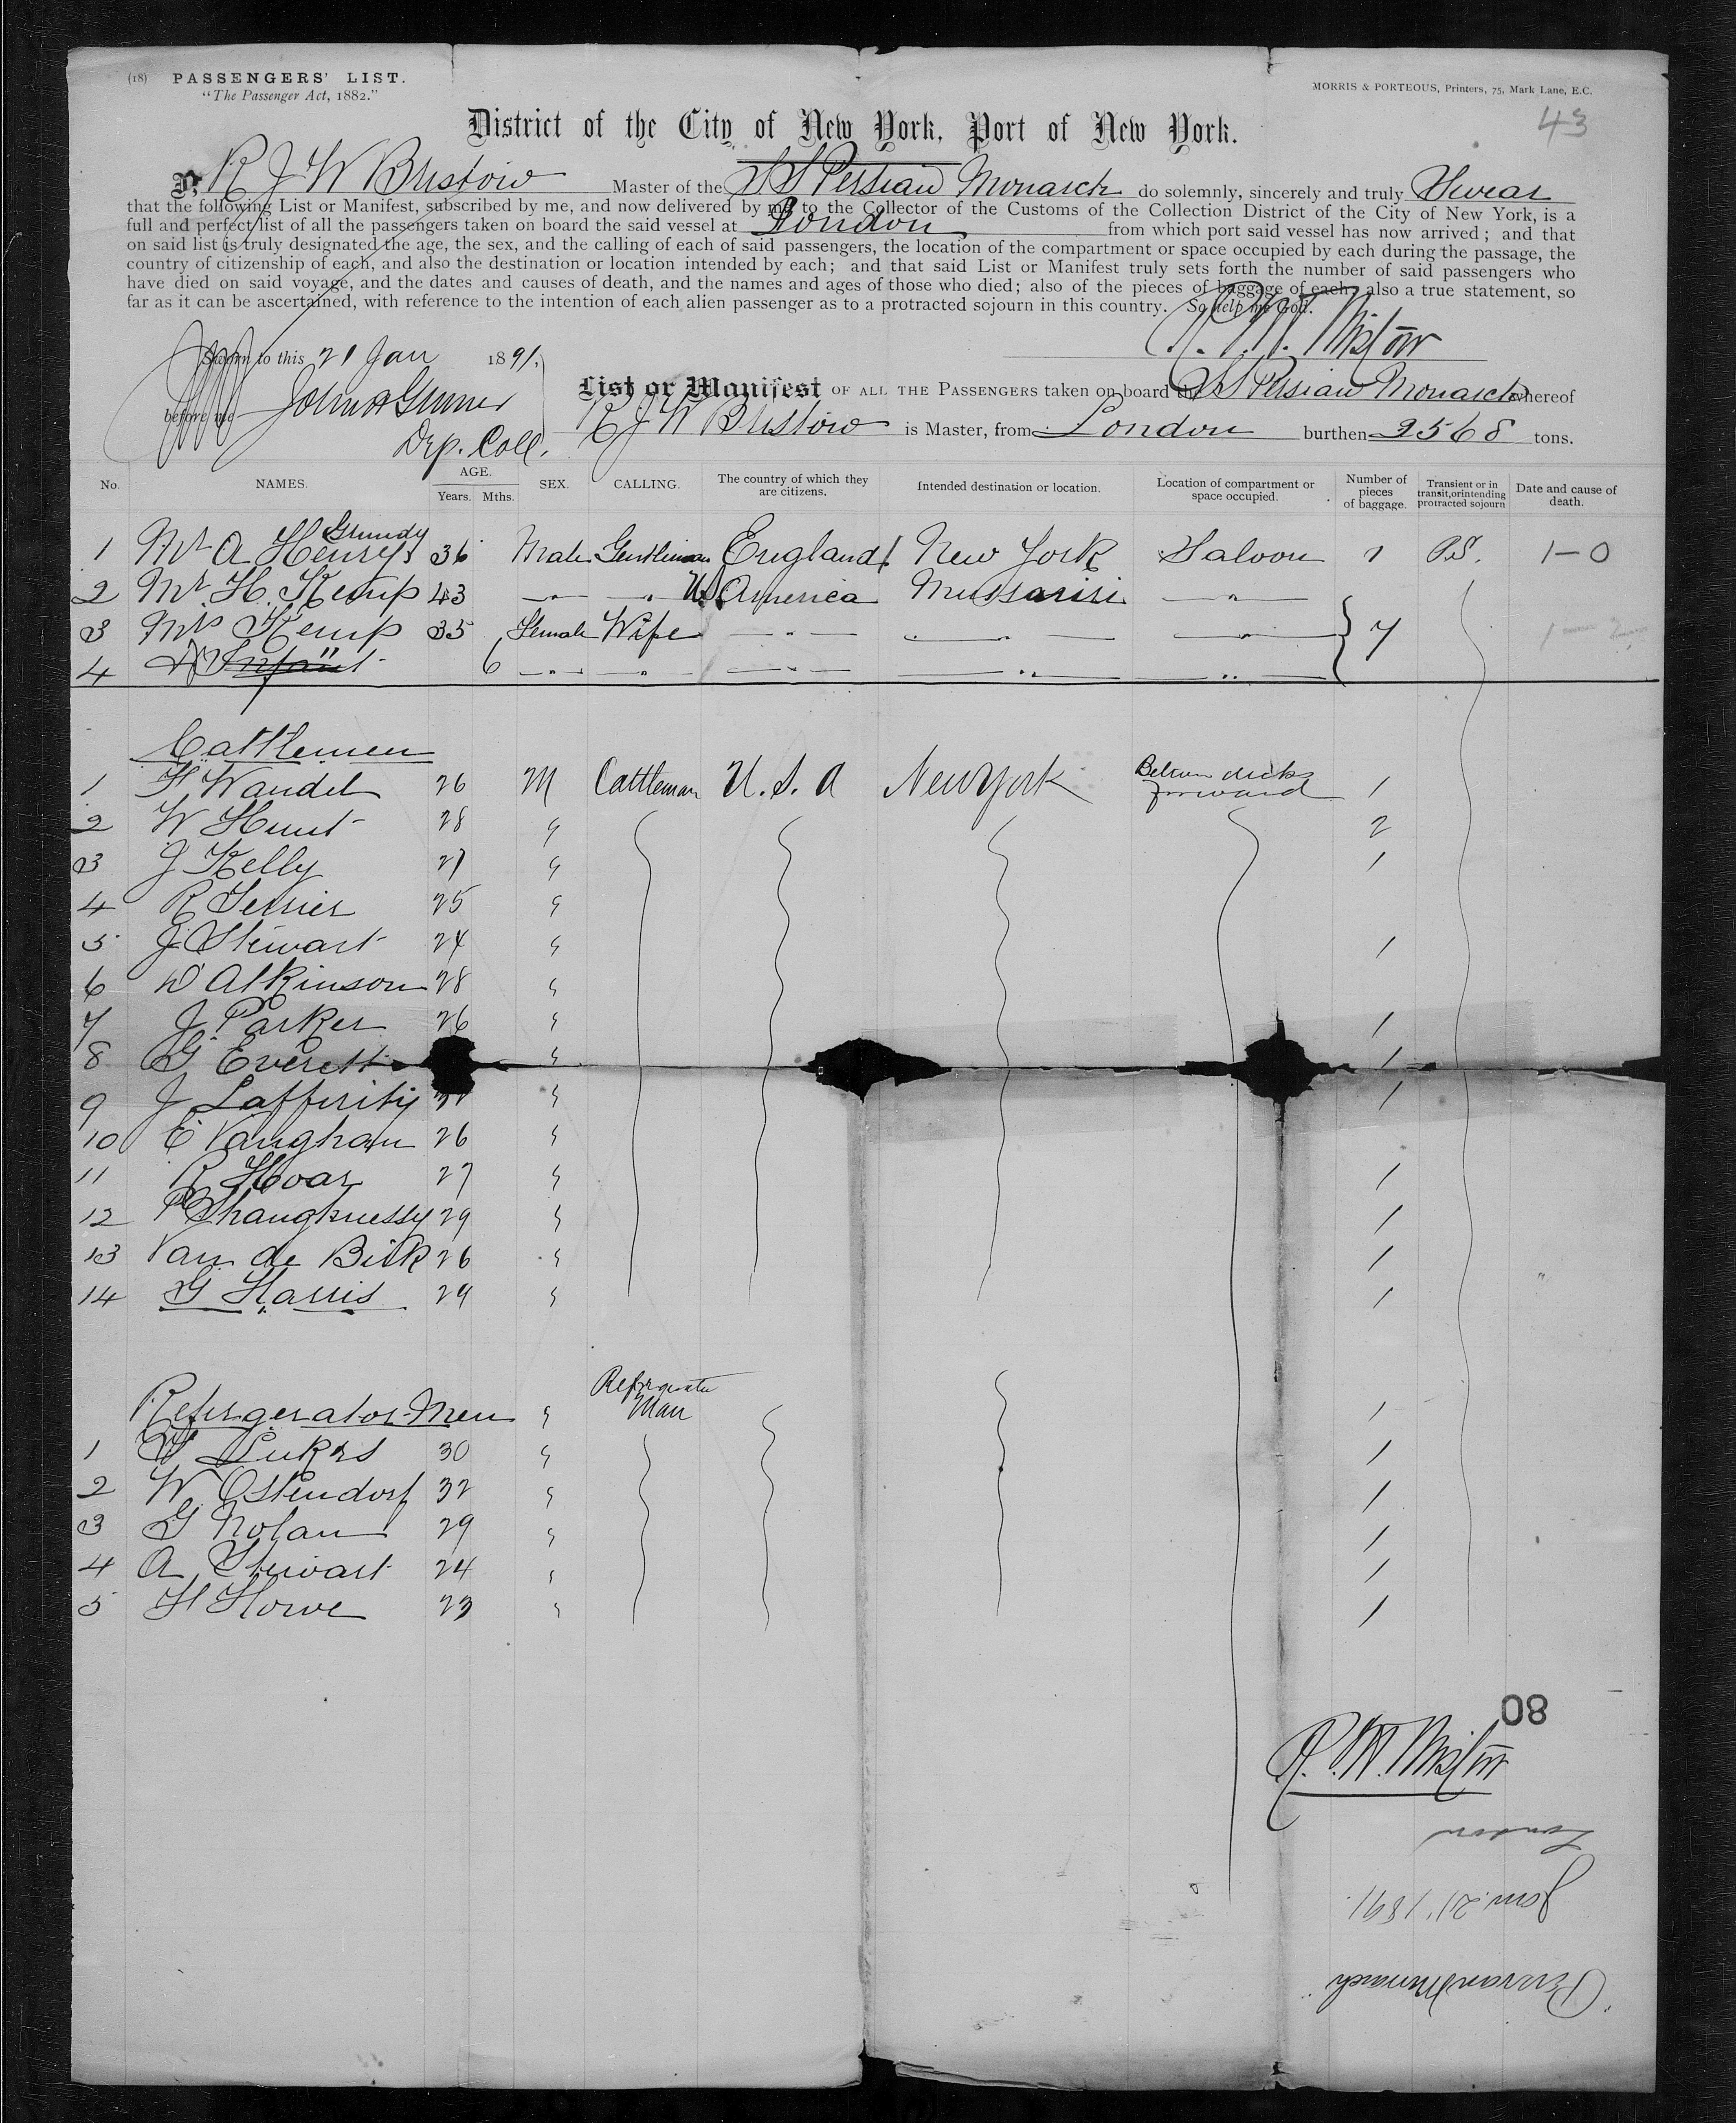 (18) PASSENGERS' LIST.
"The Passenger Act, 1882."
MORRIS & PORTEOUS, Printers, 75, Mark Lane, E.C.
43
District of the City of New York, Port of New York.
I, R J W Bristow Master of the S S Persian Monarch do solemnly, sincerely and truly Swear
that the following List or Manifest, subscribed by me, and now delivered by me to the Collector of the Customs of the Collection District of the City of New York, is a
full and perfect list of all the passengers taken on board the said vessel at London from which port said vessel has now arrived; and that
on said list is truly designated the age, the sex, and the calling of each of said passengers, the location of the compartment or space occupied by each during the passage, the
country of citizenship of each, and also the destination or location intended by each; and that said List or Manifest truly sets forth the number of said passengers who
have died on said voyage, and the dates and causes of death, and the names and ages of those who died; also of the pieces of baggage of each; also a true statement, so
far as it can be ascertained, with reference to the intention of each alien passenger as to a protracted sojourn in this country. So help me God.
Sworn to this 21 Jan 1891.
before me
Dep. Coll.
List or Manifest OF ALL THE PASSENGERS taken on board the S S Persian Monarch whereof
R J W Bristow is Master, from London burthen 2568 tons.
No. NAMES. AGE. Years. Mths. SEX. CALLING. The country of which they are citizens. Intended destination or location. Location of compartment or space occupied. Number of pieces of baggage. Transient or in transit, or intending protracted sojourn Date and cause of death.
Grundy
1 Mr A Henrys 36 Male Gentleman England New York Saloon 1 P.S. 1-0
2 Mr H. Kemp 43 " " U.S America Missouri "
3 Mrs Kemp 35 Female Wife " " " 7
4 " Infant 6 " " " " "
Cattlemen
1 H Wandel 26 M Cattleman U.S.A New York Between decks forward 1
2 W Hunt 28 " 2
3 J Kelly 21 " 1
4 R Terrier 25 "
5 J Stewart 24 " 1
6 W Atkinson 28 "
7 J Parker 26 " 1
8 G Everett " 1
9 J Lafferity " 1
10 E Vaughan 26 "
11 R Hoar 27 " 1
12 P Shaughnessy 29 " 1
13 Van de Bilk 26 " 1
14 G Harris 29 " 1
Refrigerator Men " Refrigerator Man 1
1 Lukes 30 " 1
2 W Ostendorf 32 " 1
3 G Nolan 29 " 1
4 A Stewart 24 " 1
5 H Howe 23 " 1
80
London
Jan. 21, 1891.
"Persian Monarch"